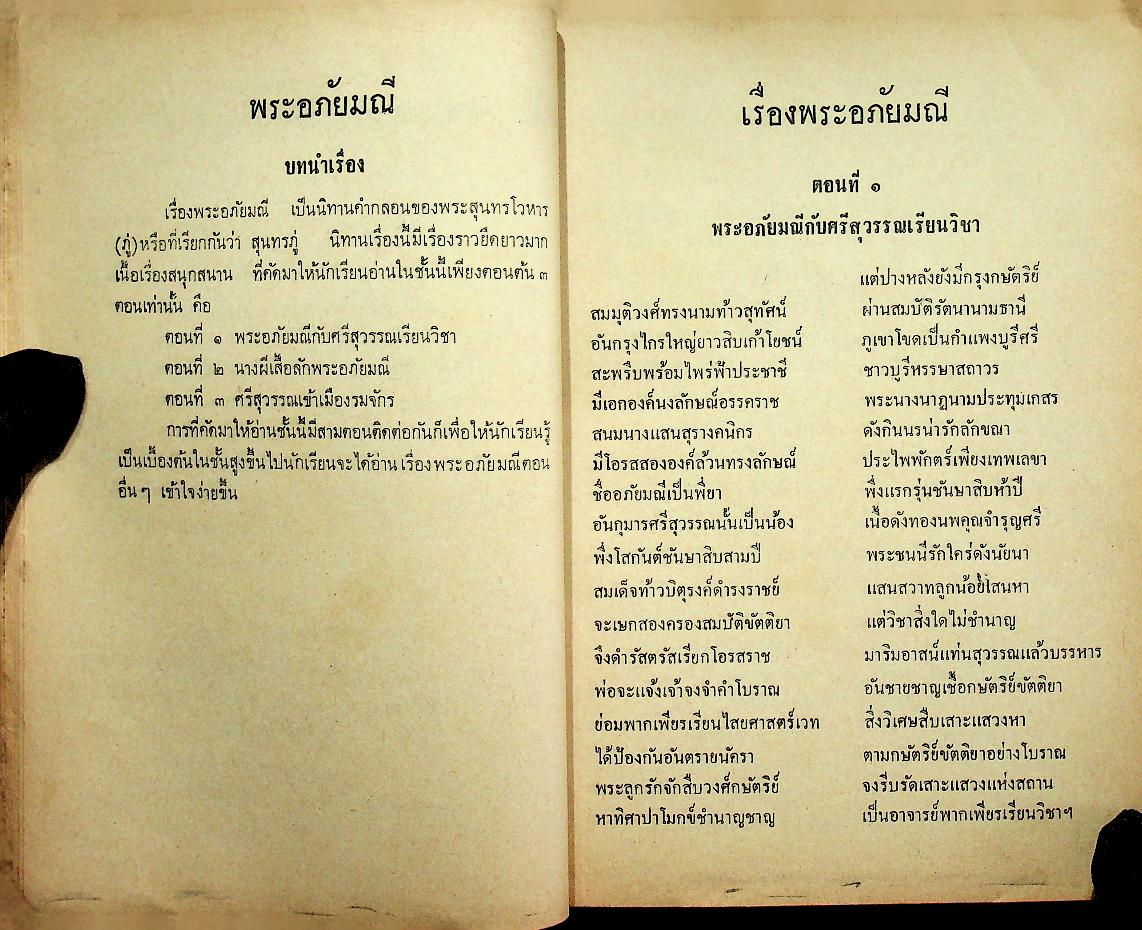 พระอภัยมณี
บทนำเรื่อง
เรื่องพระอภัยมณี เป็นนิทานคำกลอนของพระสุนทรโวหาร
(ภู่) หรือที่เรียกกันว่า สุนทรภู่ นิทานเรื่องนี้มีเรื่องราวยืดยาวมาก
เนื้อเรื่องสนุกสนาน ที่คัดมาให้นักเรียนอ่านในชั้นนี้เพียงตอนต้น ๓
ตอนเท่านั้น คือ
ตอนที่ ๑ พระอภัยมณีกับศรีสุวรรณเรียนวิชา
ตอนที่ ๒ นางผีเสื้อลักพระอภัยมณี
ตอนที่ ๓ ศรีสุวรรณเข้าเมืองรมจักร
การที่คัดมาให้อ่านชั้นนี้มีสามตอนติดต่อกันก็เพื่อให้นักเรียนรู้
เป็นเบื้องต้นในชั้นสูงขึ้นไปนักเรียนจะได้อ่าน เรื่อง พระอภัยมณีตอน
อื่น ๆ เข้าใจง่ายขึ้น
เรื่องพระอภัยมณี
ตอนที่ ๑
พระอภัยมณีกับศรีสุวรรณเรียนวิชา
แต่ปางหลังยังมีกรุงกษัตริย์
สมมุติวงศ์ทรงนามท้าวสุทัศน์ ผ่านสมบัติรัตนานามธานี
อันกรุงไกรใหญ่ยาวสิบเก้าโยชน์ ภูเขาโขดเป็นกำแพงบูรีศรี
สะพรึบพร้อมไพร่ฟ้าประชาชี ชาวบูรีหรรษาสถาวร
มีเอกองค์นงลักษณ์อรรคราช พระนางนาฏนามประทุมเกสร
สนมนางแสนสุรางคนิกร ดังกินนรน่ารักลักขณา
มีโอรสสององค์ล้วนทรงลักษณ์ ประไพพักตร์เพียงเทพเลขา
ชื่ออภัยมณีเป็นพี่ยา พึ่งแรกรุ่นชันษาสิบห้าปี
อันกุมารศรีสุวรรณนั้นเป็นน้อง เนื้อดังทองนพคุณจำรุญศรี
พึ่งโสกันต์ชันษาสิบสามปี พระชนนีรักใคร่ดังนัยนา
สมเด็จท้าวบิตุรงค์ดำรงราชย์ แสนสวาทลูกน้อยเสน่หา
จะเษกสองครองสมบัติขัตติยา แต่วิชาสิ่งใดไม่ชำนาญ
จึงดำรัสตรัสเรียกโอรสราช มาริมอาสน์แท่นสุวรรณแล้วบรรหาร
พ่อจะแจ้งเจ้าจงจำคำโบราณ อันชายชาญเชื้อกษัตริย์ขัตติยา
ย่อมพากเพียรเรียนไสยศาสตร์เวท สิ่งวิเศษสืบเสาะแสวงหา
ได้ป้องกันอันตรายนัครา ตามกษัตริย์ขัตติยาอย่างโบราณ
พระลูกรักจักสืบวงศ์กษัตริย์ จงรีบรัดเสาะแสวงแห่งสถาน
หาทิศาปาโมกข์ชำนาญชาญ เป็นอาจารย์พากเพียรเรียนวิชาฯ